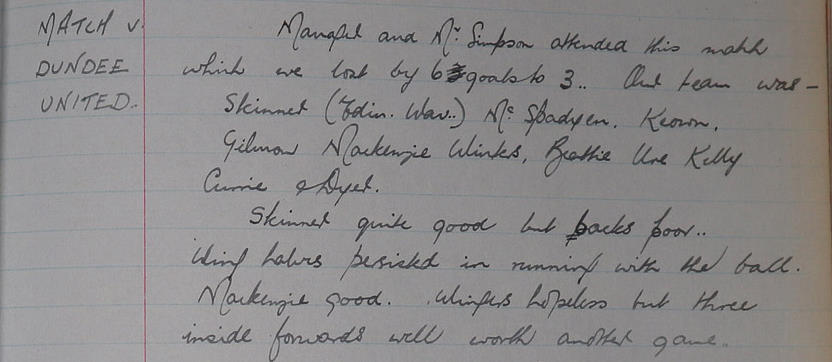 MATCH V.
DUNDEE
UNITED.
Manager and Mr. Simpson attended this match
which we lost by 6 goals to 3.. Our team was -
Skinner (Edin. Wav..) McSpadyen. Keown.
Gilmour Mackenzie Winters, Beattie Ure Kelly
Currie & Dyer.
Skinner quite good but backs poor..
Wing halves persisted in running with the ball.
Mackenzie good. Wingers hopeless but three
inside forwards well worth another game.